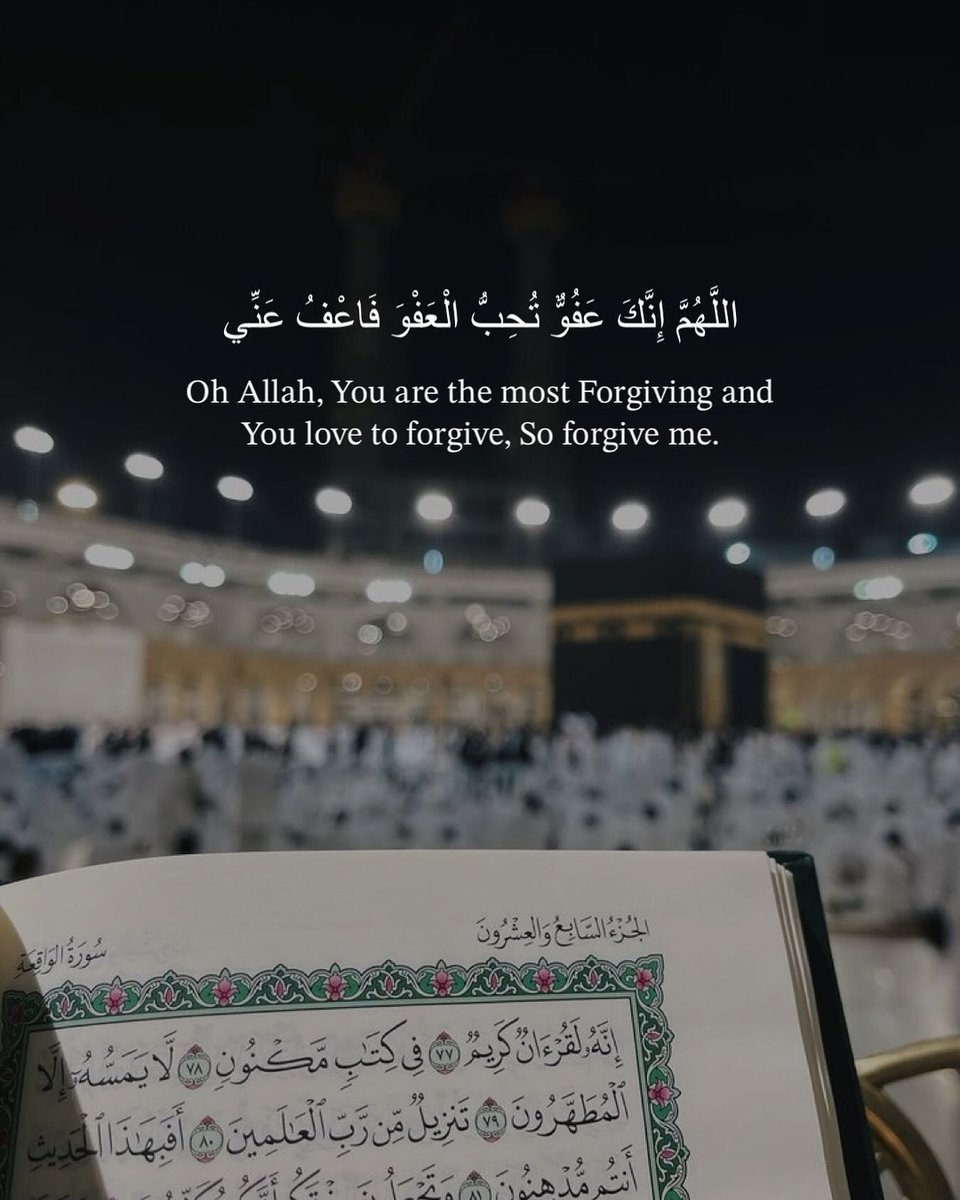 اللَّهُمَّ إِنَّكَ عَفُوٌّ تُحِبُّ الْعَفْوَ فَاعْفُ عَنِّي
Oh Allah, You are the most Forgiving and
You love to forgive, So forgive me.
الجُزْءُ السَّابِعُ وَالعِشْرُونَ
سُورَةُ الوَاقِعَةِ
إِنَّهُۥ لَقُرْءَانٌ كَرِيمٌ ٧٧ فِي كِتَٰبٍ مَّكْنُونٍ ٧٨ لَّا يَمَسُّهُۥٓ إِلَّا
ٱلْمُطَهَّرُونَ ٧٩ تَنزِيلٌ مِّن رَّبِّ ٱلْعَٰلَمِينَ ٨٠ أَفَبِهَٰذَا ٱلْحَدِيثِ
أَنتُم مُّدْهِنُونَ ٨١